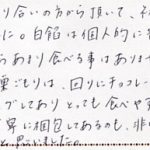 り合いの方から頂いて、そ
た。白餡は個人的に
まり食べる事はありませ
巣ごもりは、回りにチョコレー
プしてありとっても食べやす
昇に梱包してあるのも、非
と思いました。